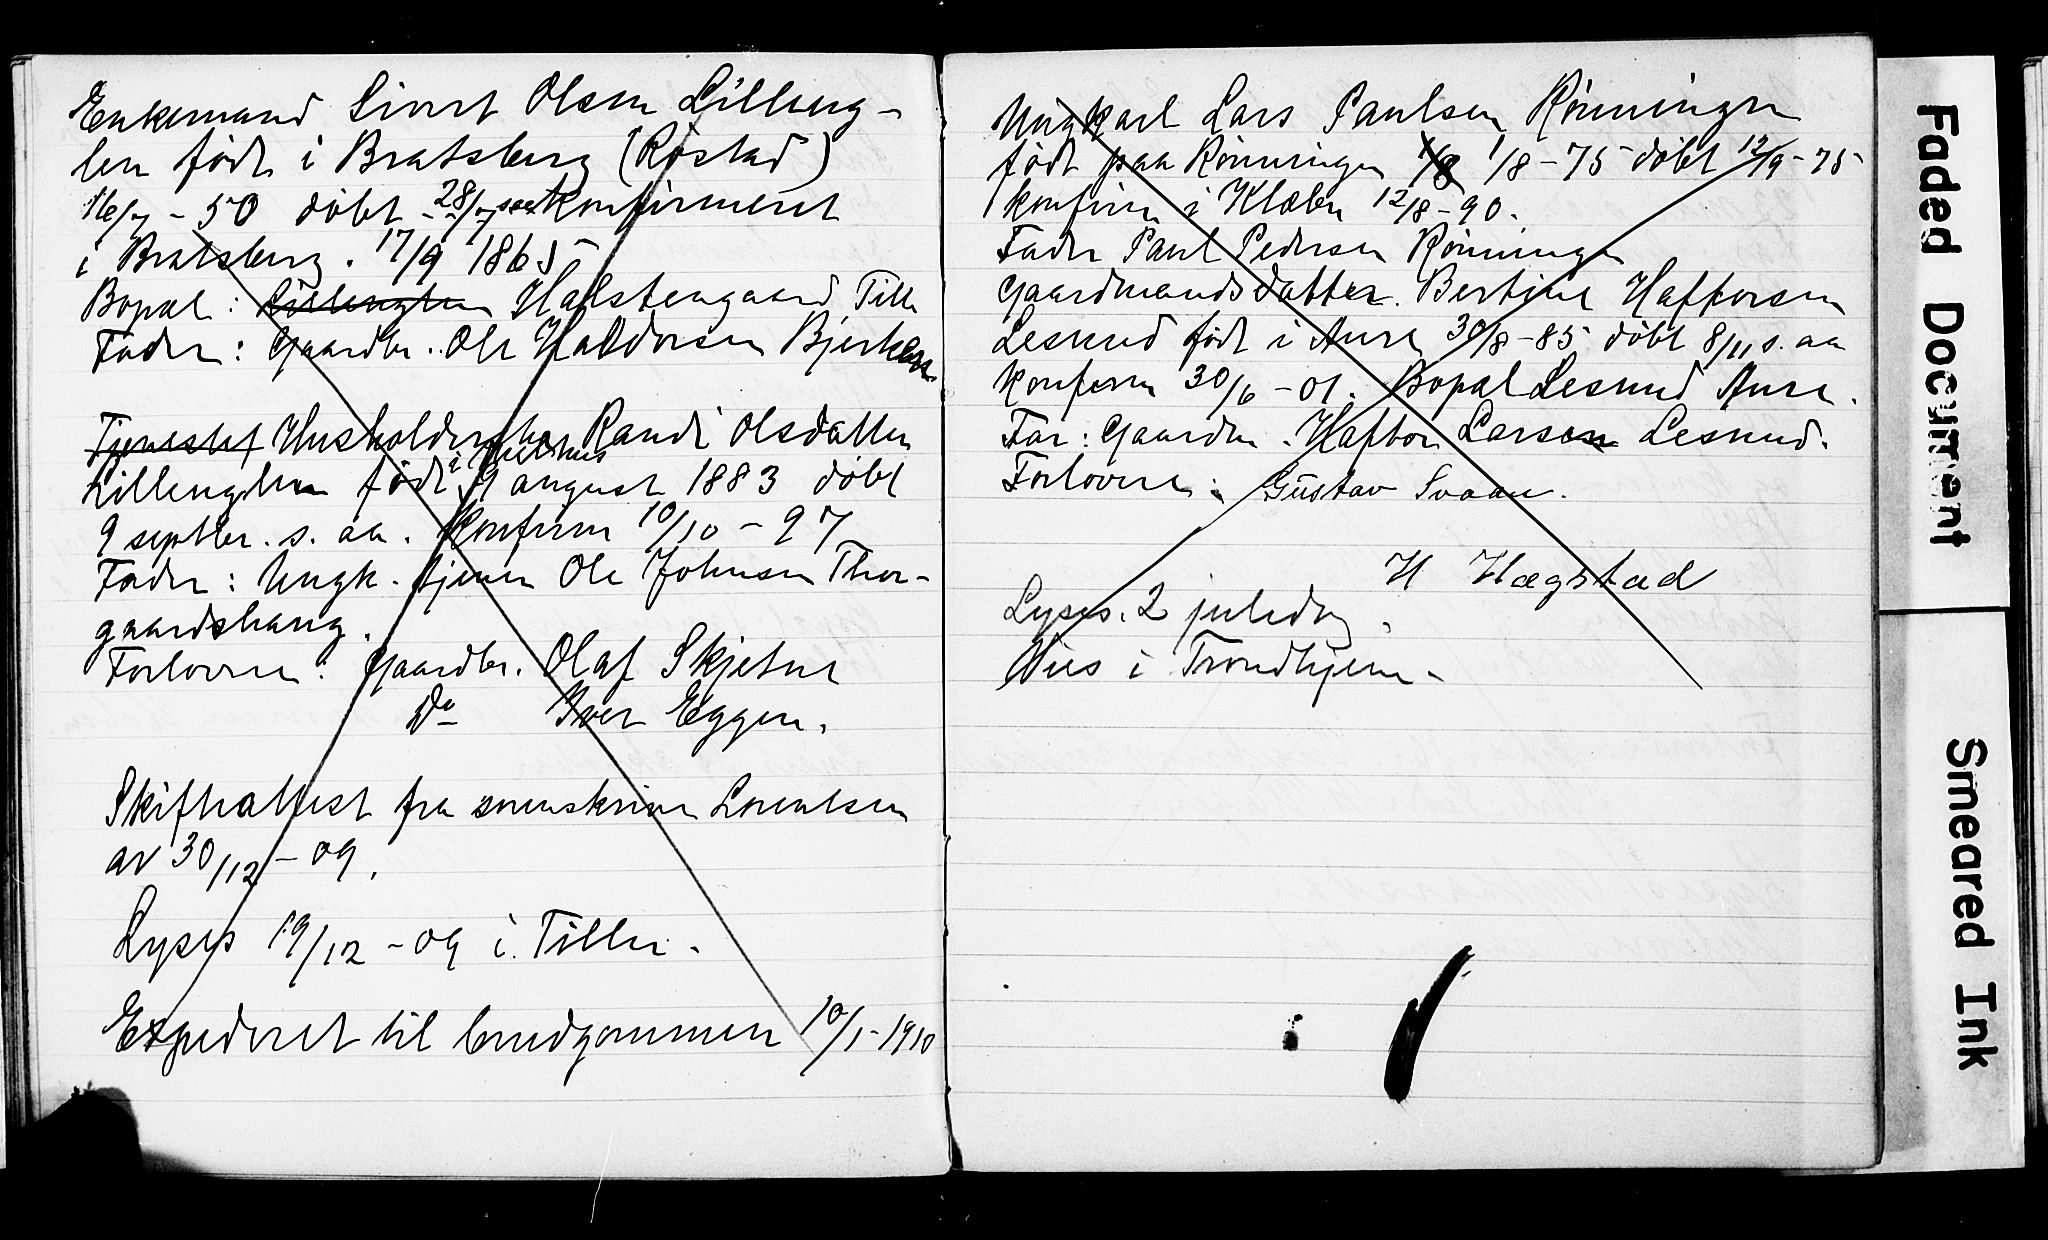 Enkemand Sivert Olsen Lilleug-
len født i Bratsberg (Røstad)
16/7 - 50 døbt 28/7 konfirmeret
i Bratsberg. 17/9 1865
Bopæl: Lilleuglen Halstengaard Tille
Fader: Gaardbr. Ole Haldorsen Bjerken
Tjenestef Husholderske Randi Olsdatter
i Melhus
Lilleuglen født 9 august 1883 døbt
9 septbr. s. aa. Konfirm 10/10 - 97
Fader: Ungk. tjener Ole Johnsen Thor-
gaardshaug.
Forlovere: Gaardbr. Olaf Skjetne
Do Iver Eggen.
Skifteattest fra sorenskriver Lorentsen
av 30/12 - 09.
Lyses 19/12 - 09 i Tiller.
Expederet til brudgommen 10/1 - 1910
Ungkarl Lars Paulsen Rønningen
født paa Rønningen 1/8 1/8 - 75 døbt 12/9 - 75
konfirm i Klæbu 12/8 - 90.
Fader Paul Pedersen Rønningen
Gaardmandsdatter. Bertine Haftorsen
Lesund født i Aure 30/8 - 85 døbt 8/11 s. aa
konfirm 30/6 - 01. Bopæl Lesund Aure.
Far: Gaardm. Haftor Larsen Lesund.
Forlovere: Gustav Svaan.
H Hægstad
Lyses. 2 juledag.
Vies i Trondhjem.
Faded Document
Smeared Ink